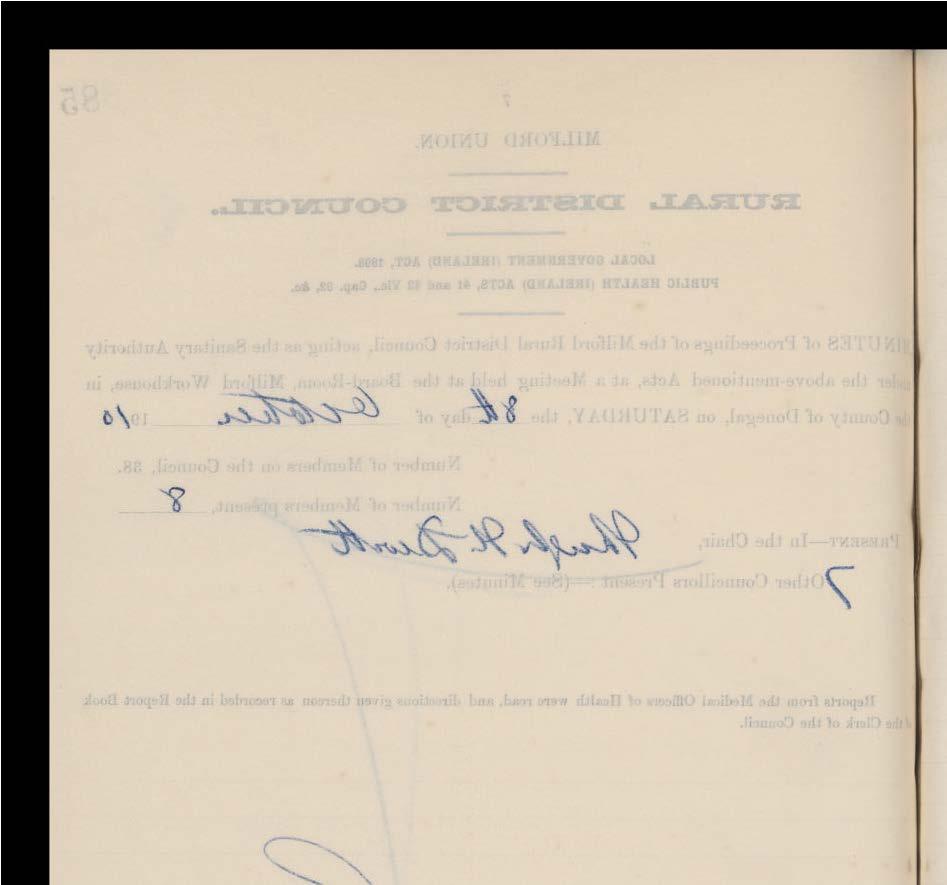 85
7
MILFORD UNION.
RURAL DISTRICT COUNCIL.
LOCAL GOVERNMENT (IRELAND) ACT, 1898.
PUBLIC HEALTH (IRELAND) ACTS, 41 and 42 Vic., Cap. 52, &c.
MINUTES of Proceedings of the Milford Rural District Council, acting as the Sanitary Authority
under the above-mentioned Acts, at a Meeting held at the Board-Room, Milford Workhouse, in
the County of Donegal, on SATURDAY, the 8th day of October 1910
Number of Members on the Council, 38.
Number of Members present, 8
PRESENT—In the Chair, Hugh
7 Other Councillors Present :—(See Minutes).
Reports from the Medical Officers of Health were read, and directions given thereon as recorded in the Report Book
of the Clerk of the Council.